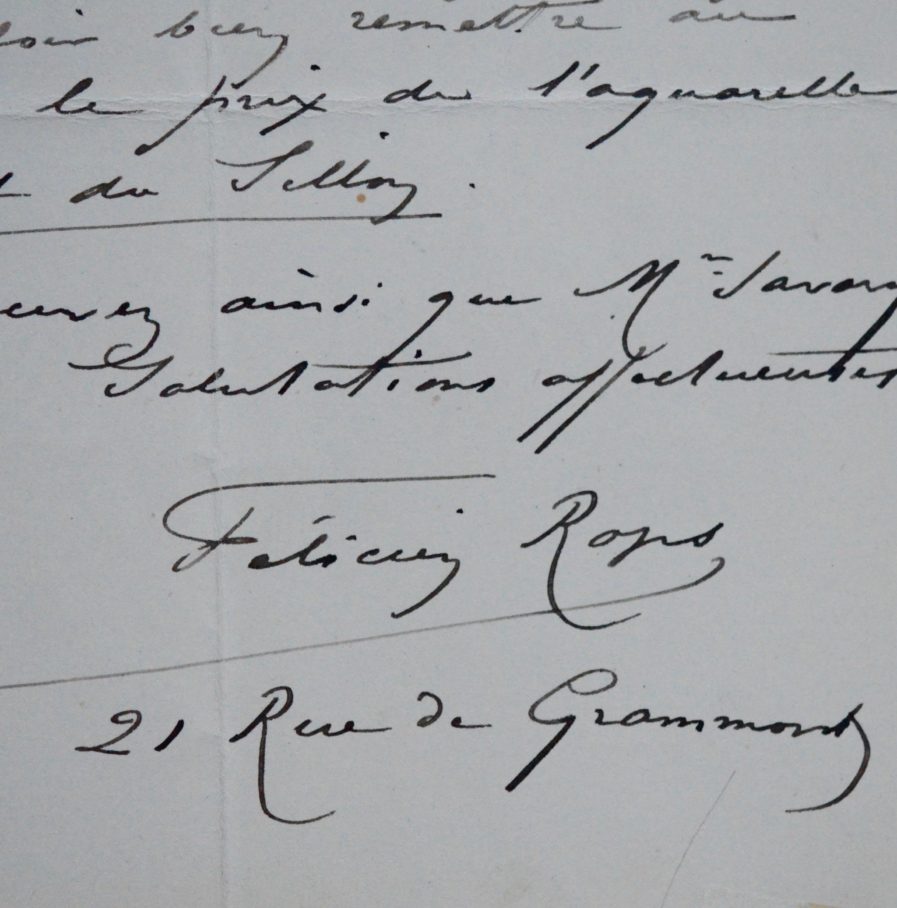 voir bien remettre au
le prix de l'aquarelle
du Sillon.
ainsi que Mr Savary
Salutations affectueuses
Félicien Rops
21 Rue de Grammont